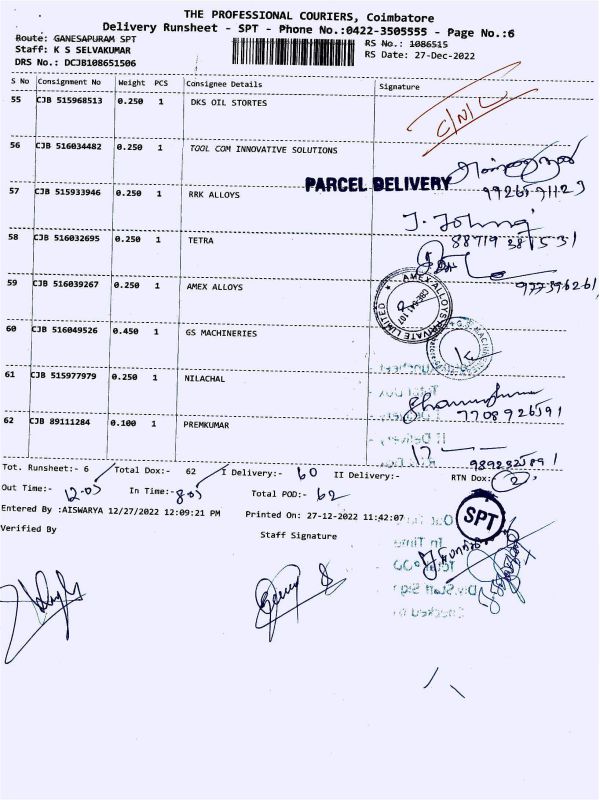 THE PROFESSIONAL COURIERS, Coimbatore
Delivery Runsheet - SPT - Phone No.:0422-3505555 - Page No.:6
Route: GANESAPURAM SPT
RS No.: 1086515
Staff: K S SELVAKUMAR
RS Date: 27-Dec-2022
DRS No.: DCJB108651506
S No Consignment No Weight PCS Consignee Details Signature
55 CJB 515968513 0.250 1 DKS OIL STORTES
C/N/L
56 CJB 516034482 0.250 1 TOOL COM INNOVATIVE SOLUTIONS
PARCEL DELIVERY
57 CJB 515933946 0.250 1 RRK ALLOYS
58 CJB 516032695 0.250 1 TETRA
59 CJB 516039267 0.250 1 AMEX ALLOYS
AMEX ALLOYS PRIVATE LIMITED
CBE-641 107
60 CJB 516049526 0.450 1 GS MACHINERIES
61 CJB 515977979 0.250 1 NILACHAL
7708926591
62 CJB 89111284 0.100 1 PREMKUMAR
Tot. Runsheet:- 6 Total Dox:- 62 I Delivery:- 60 II Delivery:- RTN Dox:- 2
Out Time:- In Time:- Total POD:- 62
Entered By :AISWARYA 12/27/2022 12:09:21 PM Printed On: 27-12-2022 11:42:07
SPT
Verified By Staff Signature